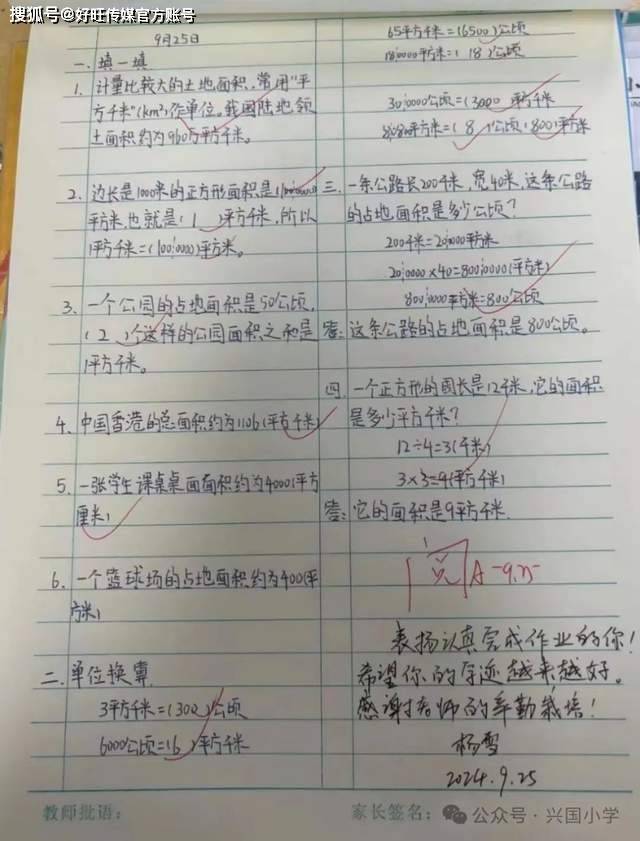 搜狐号@好旺传媒官方账号
9月25日
一、填一填
1、计量比较大的土地面积,常用"平
方千米"(km²)作单位。我国陆地领
土面积约为960万平方千米。
2、边长是1000米的正方形面积是(1000000)
平方米,也就是(1)平方千米,所以
1平方千米=(1000000)平方米。
3、一个公园的占地面积是50公顷,
(2)个这样的公园面积之和是
1平方千米。
4、中国香港的总面积约为1106(平方千米)
5、一张学生课桌桌面面积约为4000(平方
厘米)
6、一个篮球场的占地面积约为400(平
方米)
二、单位换算
3平方千米=(300)公顷
6000公顷=(6)平方千米
65平方千米=(6500)公顷
180000平方米=(18)公顷
300000公顷=(3000)平方千米
80800平方米=(8)公顷(800)平方米
三、一条公路长200千米,宽40米,这条公路
的占地面积是多少公顷?
200千米=200000平方米
200000×40=8000000(平方米)
8000000平方米=800公顷
答:这条公路的占地面积是800公顷。
四、一个正方形的周长是12千米,它的面积
是多少平方千米?
12÷4=3(千米)
3×3=9(平方千米)
答:它的面积是9平方千米.
阅 A 9.25
表扬认真完成作业的你!
希望你的字迹越来越好。
感谢老师的辛勤栽培!
杨雪
2024.9.25
教师批语:
家长签名:
公众号·兴国小学